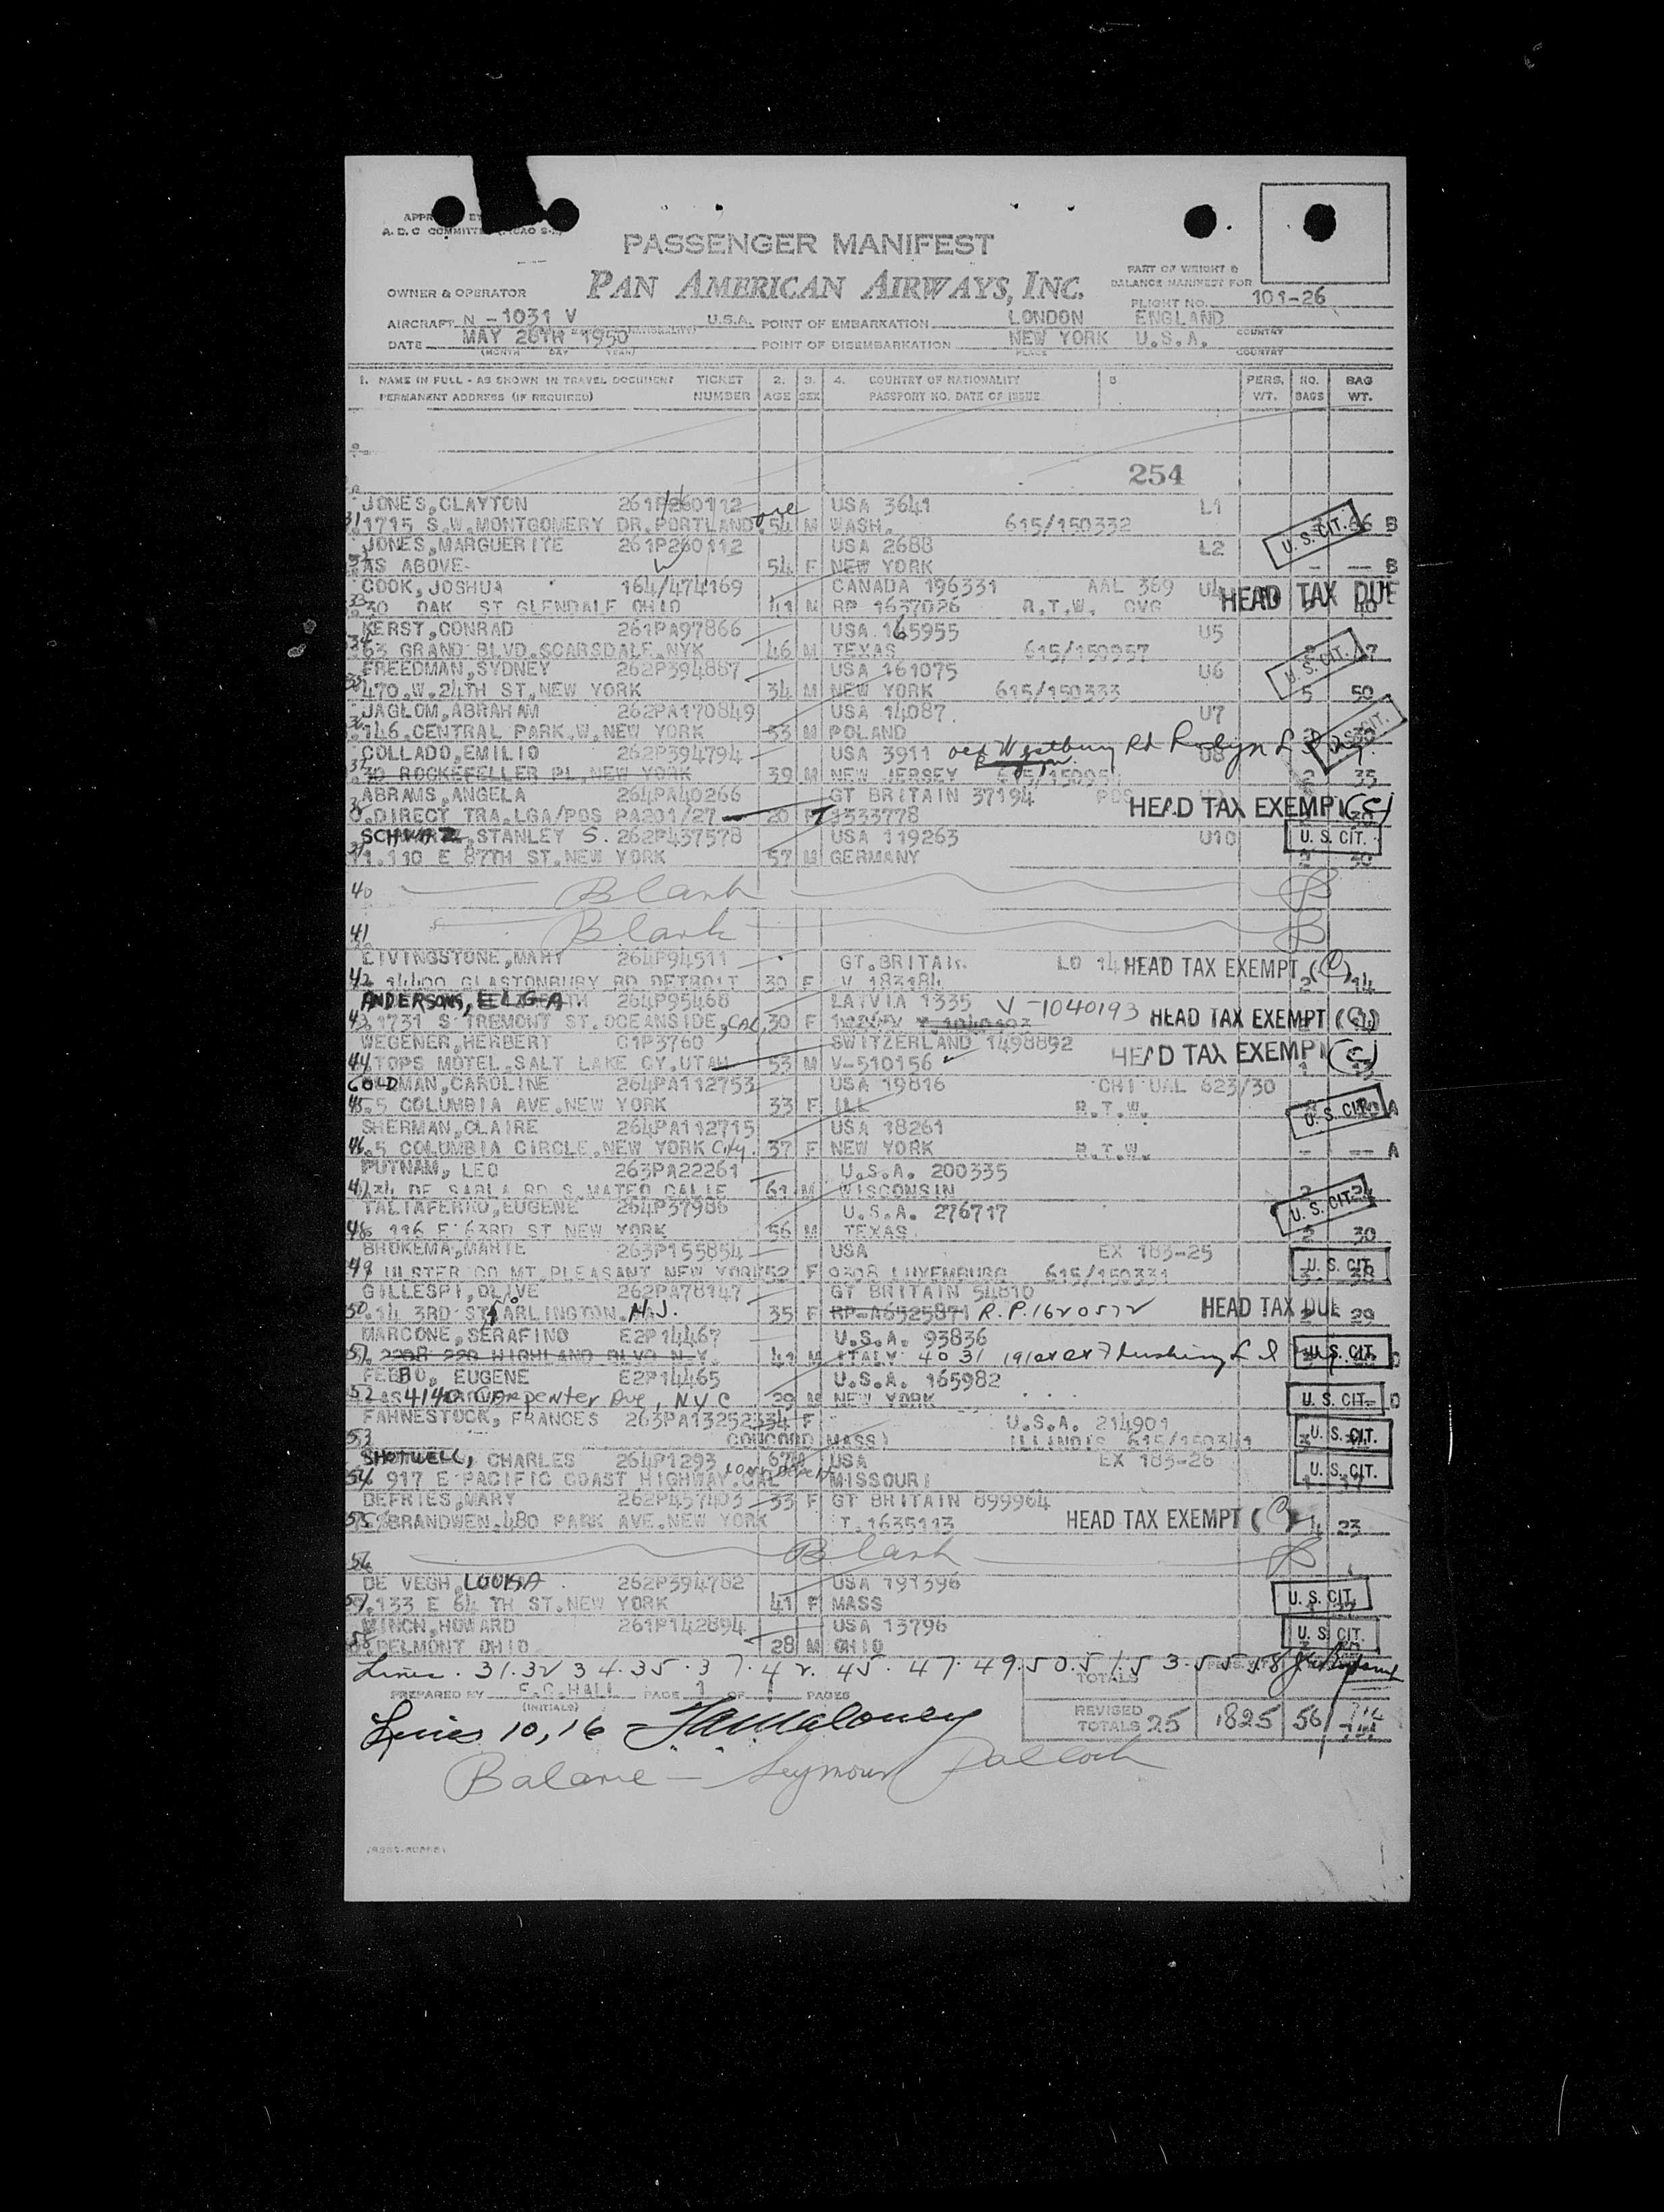 PASSENGER MANIFEST
PAN AMERICAN AIRWAYS, INC.
PART OF WEIGHT &
BALANCE MANIFEST FOR
OWNER & OPERATOR
FLIGHT NO. 101-26
AIRCRAFT N-1031 V U.S.A. POINT OF EMBARKATION LONDON ENGLAND
DATE MAY 28TH 1950 POINT OF DISEMBARKATION NEW YORK U.S.A.
(MONTH DAY YEAR) PLACE COUNTRY
1. NAME IN FULL - AS SHOWN IN TRAVEL DOCUMENT TICKET 2. 3. 4. COUNTRY OF NATIONALITY 5 PERS. NO. BAG
PERMANENT ADDRESS (IF REQUIRED) NUMBER AGE SEX PASSPORT NO. DATE OF ISSUE WT. BAGS WT.
254
JONES,CLAYTON USA 3641 L1
31. 1715 S.W.MONTGOMERY DR.PORTLAND. ore 54 M WASH. 615/150332 U.S. CIT. 66 B
JONES,MARGUERITE 261P260112 USA 2688 L2
AS ABOVE 54 F NEW YORK - -- B
COOK,JOSHUA 164/474169 CANADA 196331 AAL 369 U4 HEAD TAX DUE
33 30 OAK ST GLENDALE OHIO 41 M RP 1637026 R.T.W. CVG
KERST,CONRAD 261PA97866 USA 165955 U5
34 63 GRAND BLVD.SCARSDALE.NYK 46 M TEXAS 615/150957
FREEDMAN,SYDNEY 262P394887 USA 161075 U6 U.S. CIT.
35 470.W.24TH ST,NEW YORK 34 M NEW YORK 615/150333 5 50
JAGLOM,ABRAHAM 262PA170849 USA 14087 U7
36 146.CENTRAL PARK.W,NEW YORK 53 M POLAND
COLLADO,EMILIO 262P394794 USA 3911 old Westbury Rd Roslyn U8
37 30 ROCKEFELLER PL,NEW YORK 39 M NEW JERSEY 2 35
ABRAMS,ANGELA 264PA40266 GT BRITAIN 37194 HEAD TAX EXEMPT (C)
DIRECT TRA.LGA/PDS PA201/27 20 F 1533778
SCHWARZ,STANLEY S. 262P437578 USA 119263 U10 U.S. CIT.
110 E 87TH ST.NEW YORK 57 M GERMANY 2 30
40 Blank
41 Blank
LIVINGSTONE,MARY 264P94511 GT.BRITAIN HEAD TAX EXEMPT (C)
42 14400 GLASTONBURY RD DETROIT 30 F V 183184 2 14
ANDERSONS, ELGA 264P95468 LATVIA 1335 V-1040193
43 1731 S TREMONT ST.OCEANSIDE, CAL. 30 F HEAD TAX EXEMPT (C)
WEGENER,HERBERT 01P3760 SWITZERLAND 1498892
44 TOPS MOTEL.SALT LAKE CY.UTAH 53 M V-510156 HEAD TAX EXEMPT (C)
GOLDMAN,CAROLINE 264PA112753 USA 19816 CHI UAL 623/30
45. 5 COLUMBIA AVE.NEW YORK 33 F ILL R.T.W. U.S. CIT. A
SHERMAN,CLAIRE 264PA112715 USA 18261
46. 5 COLUMBIA CIRCLE.NEW YORK City. 37 F NEW YORK R.T.W. - -- A
PUTNAM, LEO 263PA22261 U.S.A. 200335
47 61 M WISCONSIN 2 24
TALIAFERRO,EUGENE 264P37986 U.S.A. 276717 U.S. CIT.
48 116 E 63RD ST NEW YORK 56 M TEXAS 2 30
BROKEMA,MARIE 263P155854 USA EX 183-25
49 ULSTER CO MT.PLEASANT NEW YORK 52 F 9308 LUXEMBURG 615/150331 U.S. CIT.
GILLESPI,OLIVE 262PA78147 GT BRITAIN 54810
50. 14 3RD ST ARLINGTON. N.J. 35 F RP-A6525871 R.P.1620572 HEAD TAX DUE 29
MARCONE,SERAFINO E2P14467 U.S.A. 93836
51. HIGHLAND BLVD N.Y. 41 M ITALY U.S. CIT.
FEBBO, EUGENE E2P14465 U.S.A. 165982
52 4140 Carpenter Ave, NYC 29 M NEW YORK U.S. CIT. D
FAHNESTOCK, FRANCES 34 F U.S.A. 214901
53 CONCORD MASS) ILLINOIS U.S. CIT.
SHOTWELL, CHARLES 264P1293 67 USA EX 183-26
54 917 E PACIFIC COAST HIGHWAY.CAL MISSOURI U.S. CIT.
DEFRIES,MARY 262P457403 33 F GT BRITAIN 899964
55 BRANDWEN.480 PARK AVE.NEW YORK T.1635113 HEAD TAX EXEMPT (C) 23
56 Blank
DE VEGH,LOUISA 262P394782 USA 191396
57.133 E 64 TH ST.NEW YORK 41 F MASS U.S. CIT.
MINCH,HOWARD 261P142894 USA 13796
BELMONT OHIO 28 M OHIO U.S. CIT.
Lines. 31.32 34.35.37.42.45.47.49.50.51.53.55.58
TOTALS
PREPARED BY F.C.HALL PAGE 1 OF 1 PAGES
(INITIALS)
REVISED TOTALS 25 1825 56
Lines 10,16 Maloney
Balance - Seymour Pollock